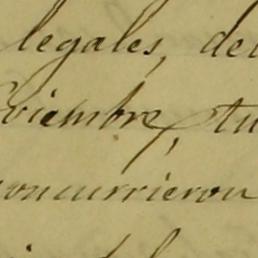 legales, del
viembre, tu
concurrieron